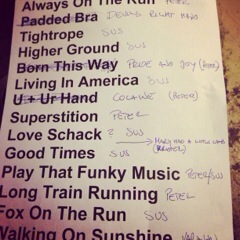 Always On The Run PETER
Padded Bra
Tightrope SUS
Higher Ground SUS
Born This Way PRIDE AND JOY (PETER)
Living In America SUS
U + Ur Hand COCAINE (PETER)
Superstition PETER
Love Schack 2 → MARY HAD A LITTLE LAMB
Good Times SUS (PETER)
Play That Funky Music PETER/SUS
Long Train Running PETER
Fox On The Run SUS
Walking On Sunshine